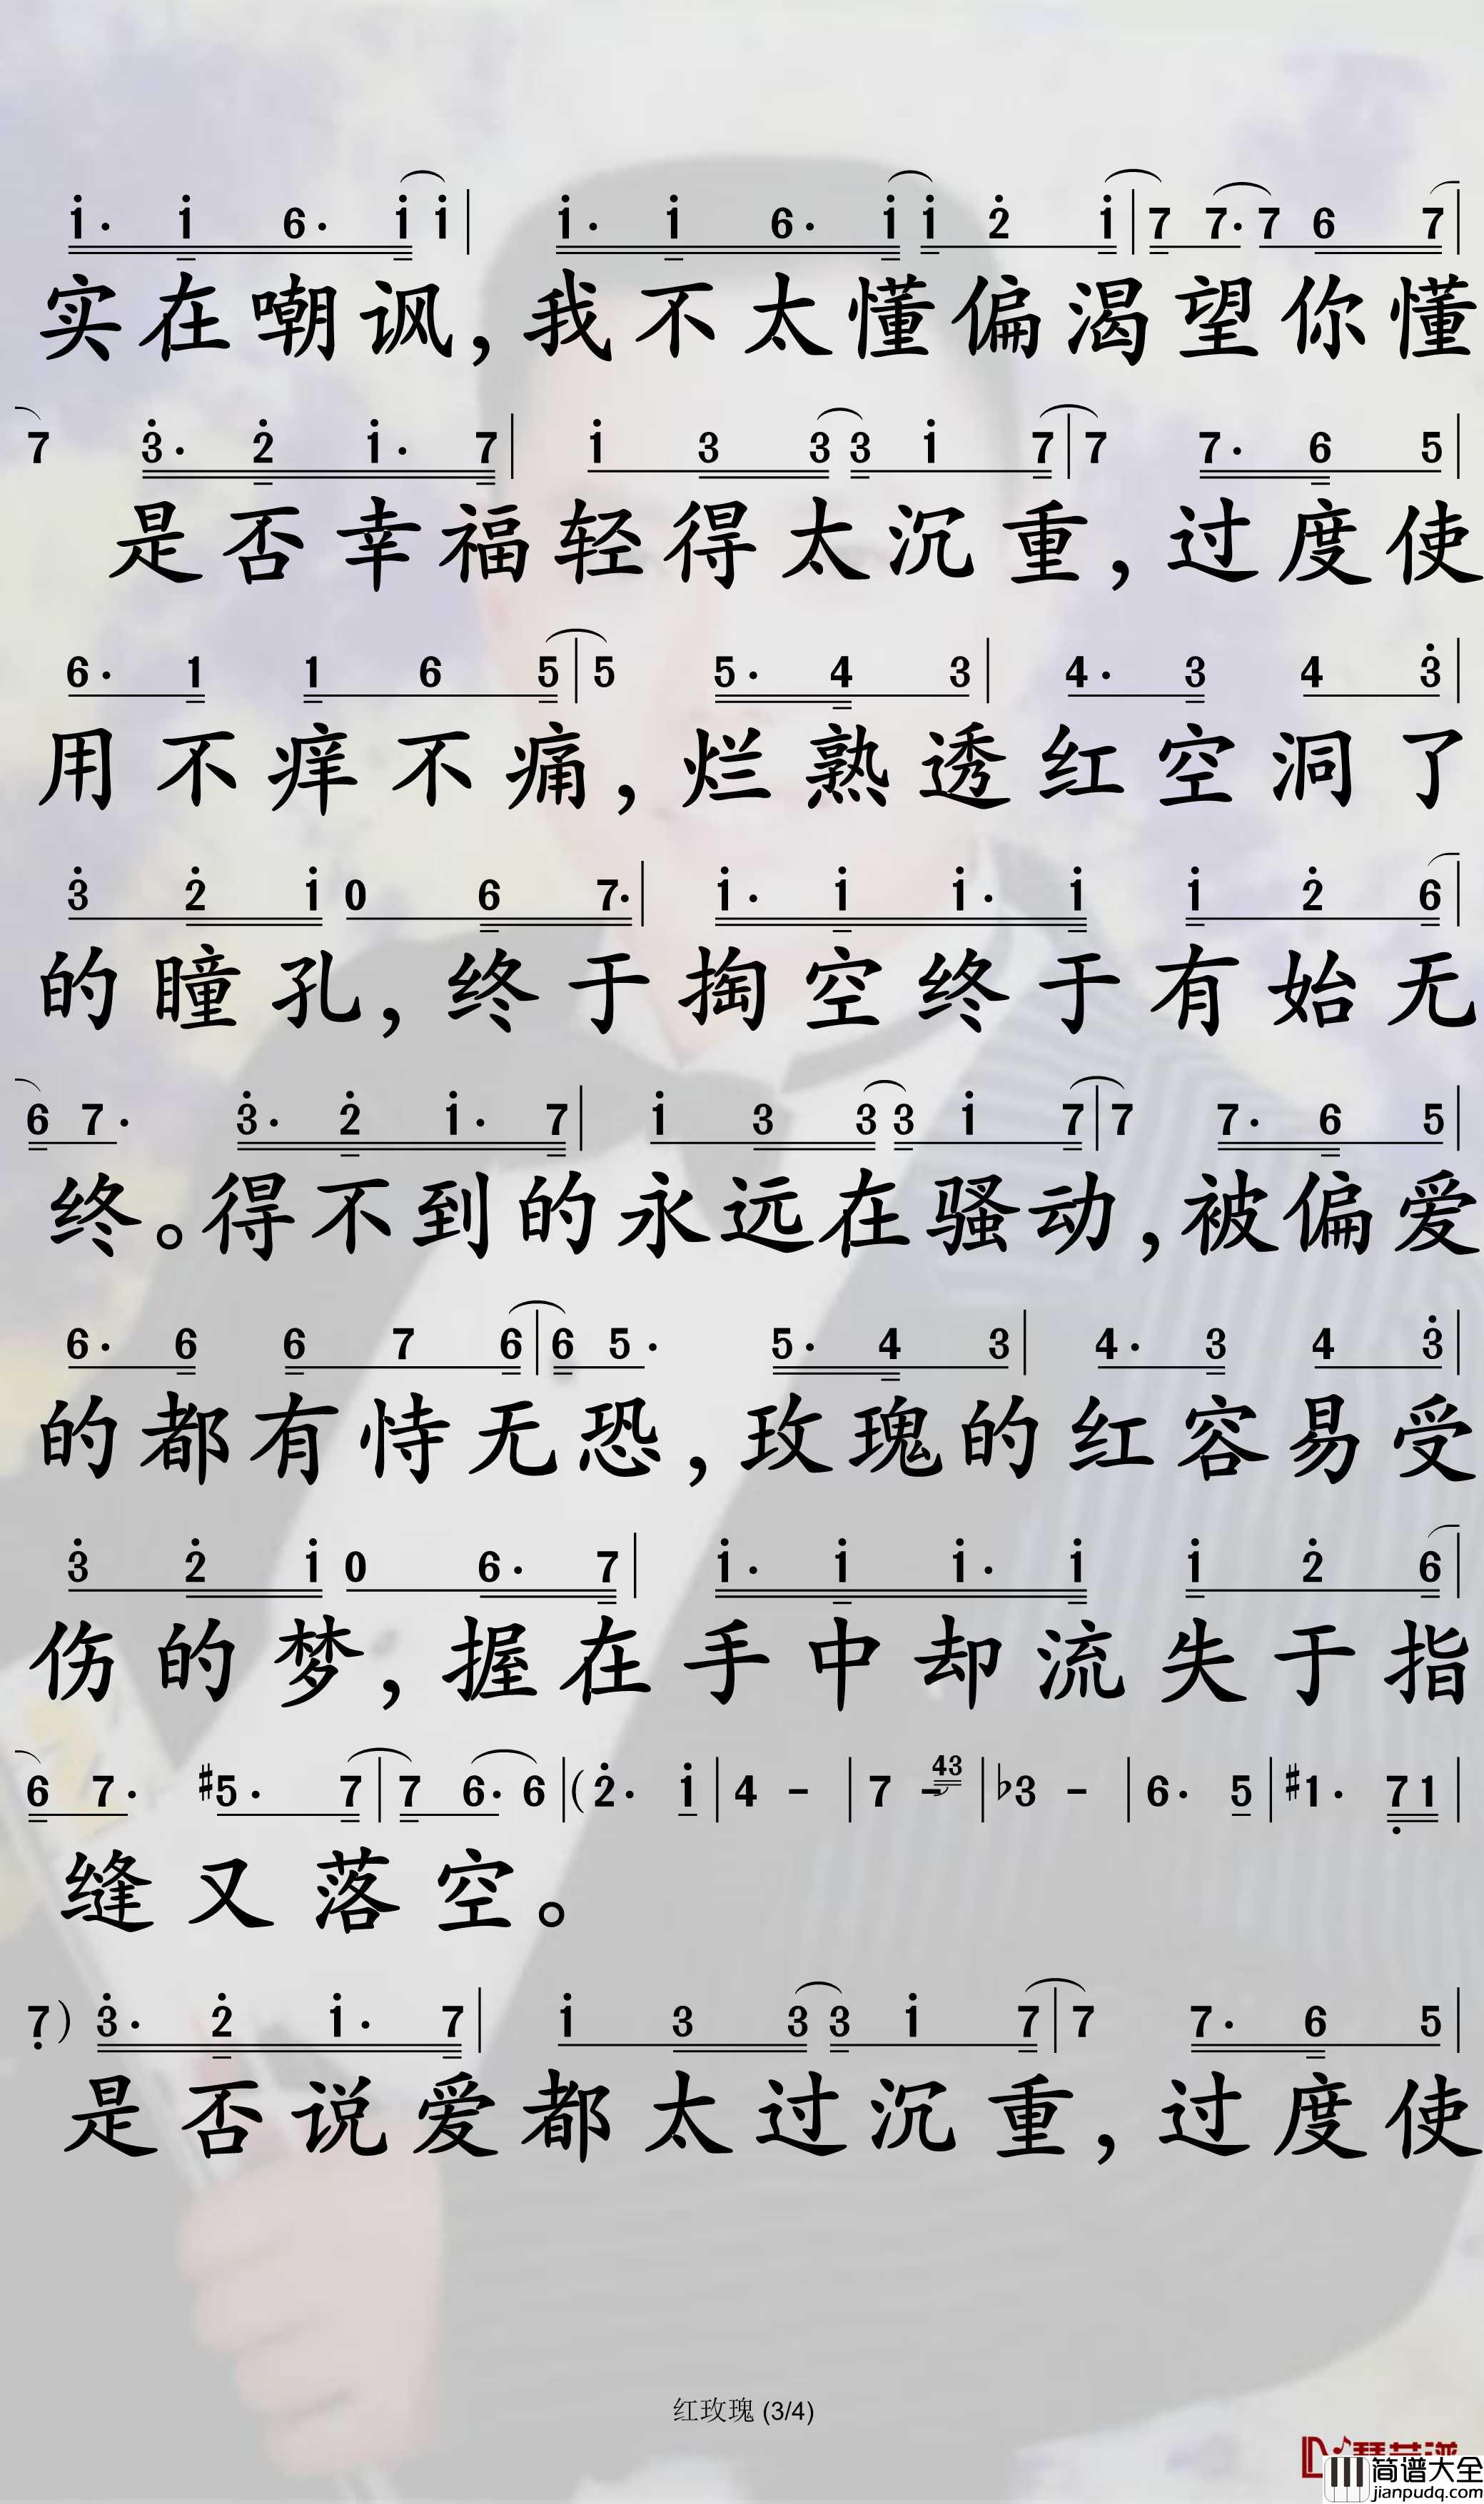 1. 1 6. 1 1 | 1. 1 6. 1 1 2 1 | 7 7. 7 6 7 |
实在嘲讽，我不太懂偏渴望你懂
7 3. 2 1. 7 | 1 3 3 3 1 7 | 7 7. 6 5 |
是否幸福轻得太沉重，过度使
6. 1 1 6 5 | 5 5. 4 3 | 4. 3 4 3 |
用不痒不痛，烂熟透红空洞了
3 2 1 0 6 7. | 1. 1 1. 1 1 2 6 |
的瞳孔，终于掏空终于有始无
6 7. 3. 2 1. 7 | 1 3 3 3 1 7 | 7 7. 6 5 |
终。得不到的永远在骚动，被偏爱
6. 6 6 7 6 | 6 5. 5. 4 3 | 4. 3 4 3 |
的都有恃无恐，玫瑰的红容易受
3 2 1 0 6. 7 | 1. 1 1. 1 1 2 6 |
伤的梦，握在手中却流失于指
6 7. #5. 7 | 7 6. 6 | (2. 1 | 4 - | 7 - 43 | b3 - | 6. 5 | #1. 7 1 |
缝又落空。
7) 3. 2 1. 7 | 1 3 3 3 1 7 | 7 7. 6 5 |
是否说爱都太过沉重，过度使
红玫瑰 (3/4)
简谱大全
jianpudq.com